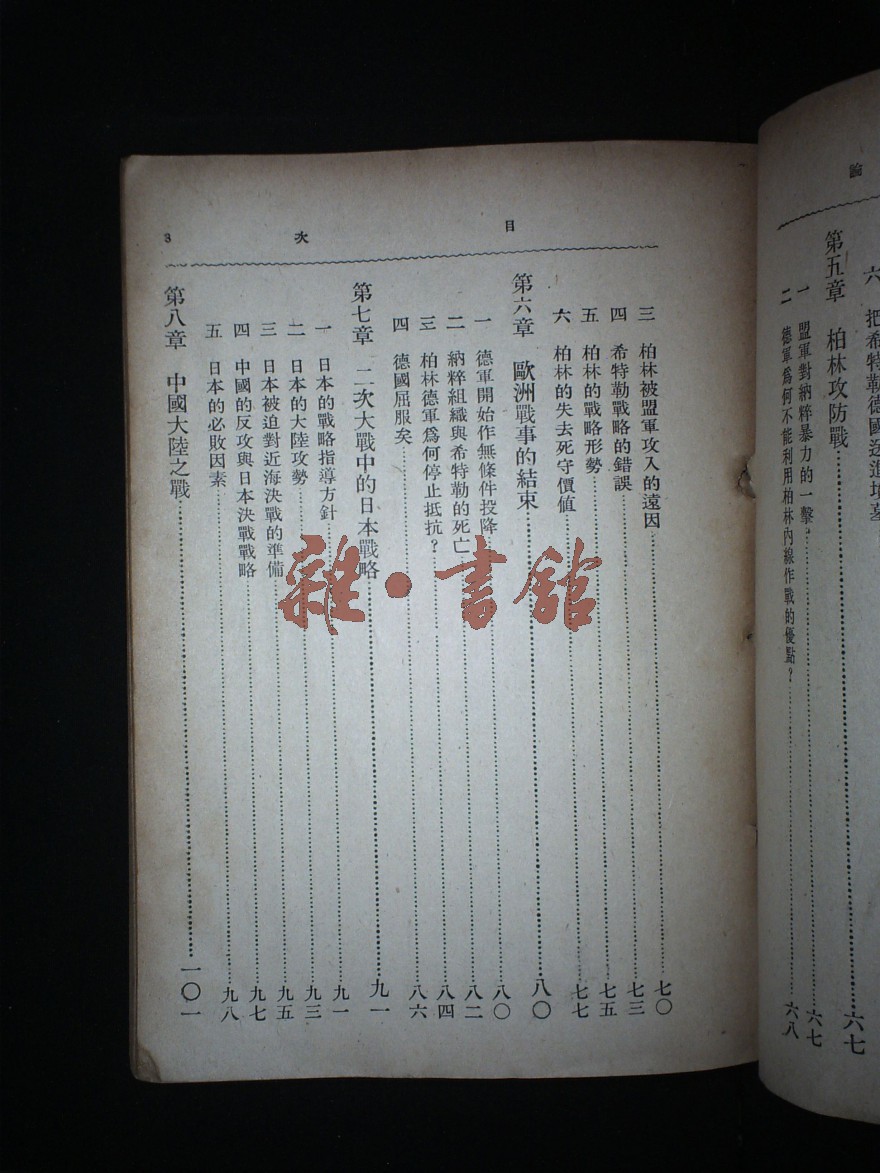 論
六 把希特勒德國送進墳墓
第五章 柏林攻防戰……六七
一 盟軍對納粹暴力的一擊……六七
二 德軍爲何不能利用柏林內線作戰的優點?……六八
目次 3
三 柏林被盟軍攻入的遠因……七〇
四 希特勒戰略的錯誤……七三
五 柏林的戰略形勢……七五
六 柏林的失去死守價值……七七
第六章 歐洲戰事的結束……八〇
一 德軍開始作無條件投降……八〇
二 納粹組織與希特勒的死亡……八二
三 柏林德軍爲何停止抵抗?……八四
四 德國屈服矣……八六
第七章 二次大戰中的日本戰略……九一
一 日本的戰略指導方針……九一
二 日本的大陸攻勢……九三
三 日本被迫對近海決戰的準備……九五
四 中國的反攻與日本決戰戰略……九七
五 日本的必敗因素……九八
第八章 中國大陸之戰……一〇一
雜·書館